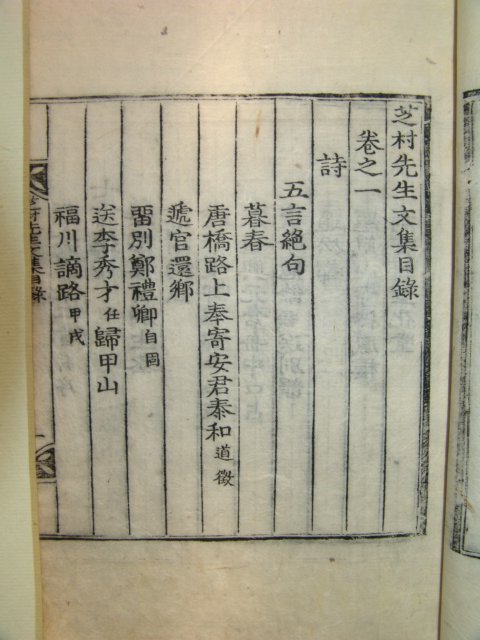 芝村先生文集目錄
卷之一
詩
五言絕句
暮春
唐橋路上奉寄安君泰和道徵
遞官還鄉
留別鄭禮卿自周
送李秀才任歸甲山
福川謫路甲戌
芝村先生文集目錄